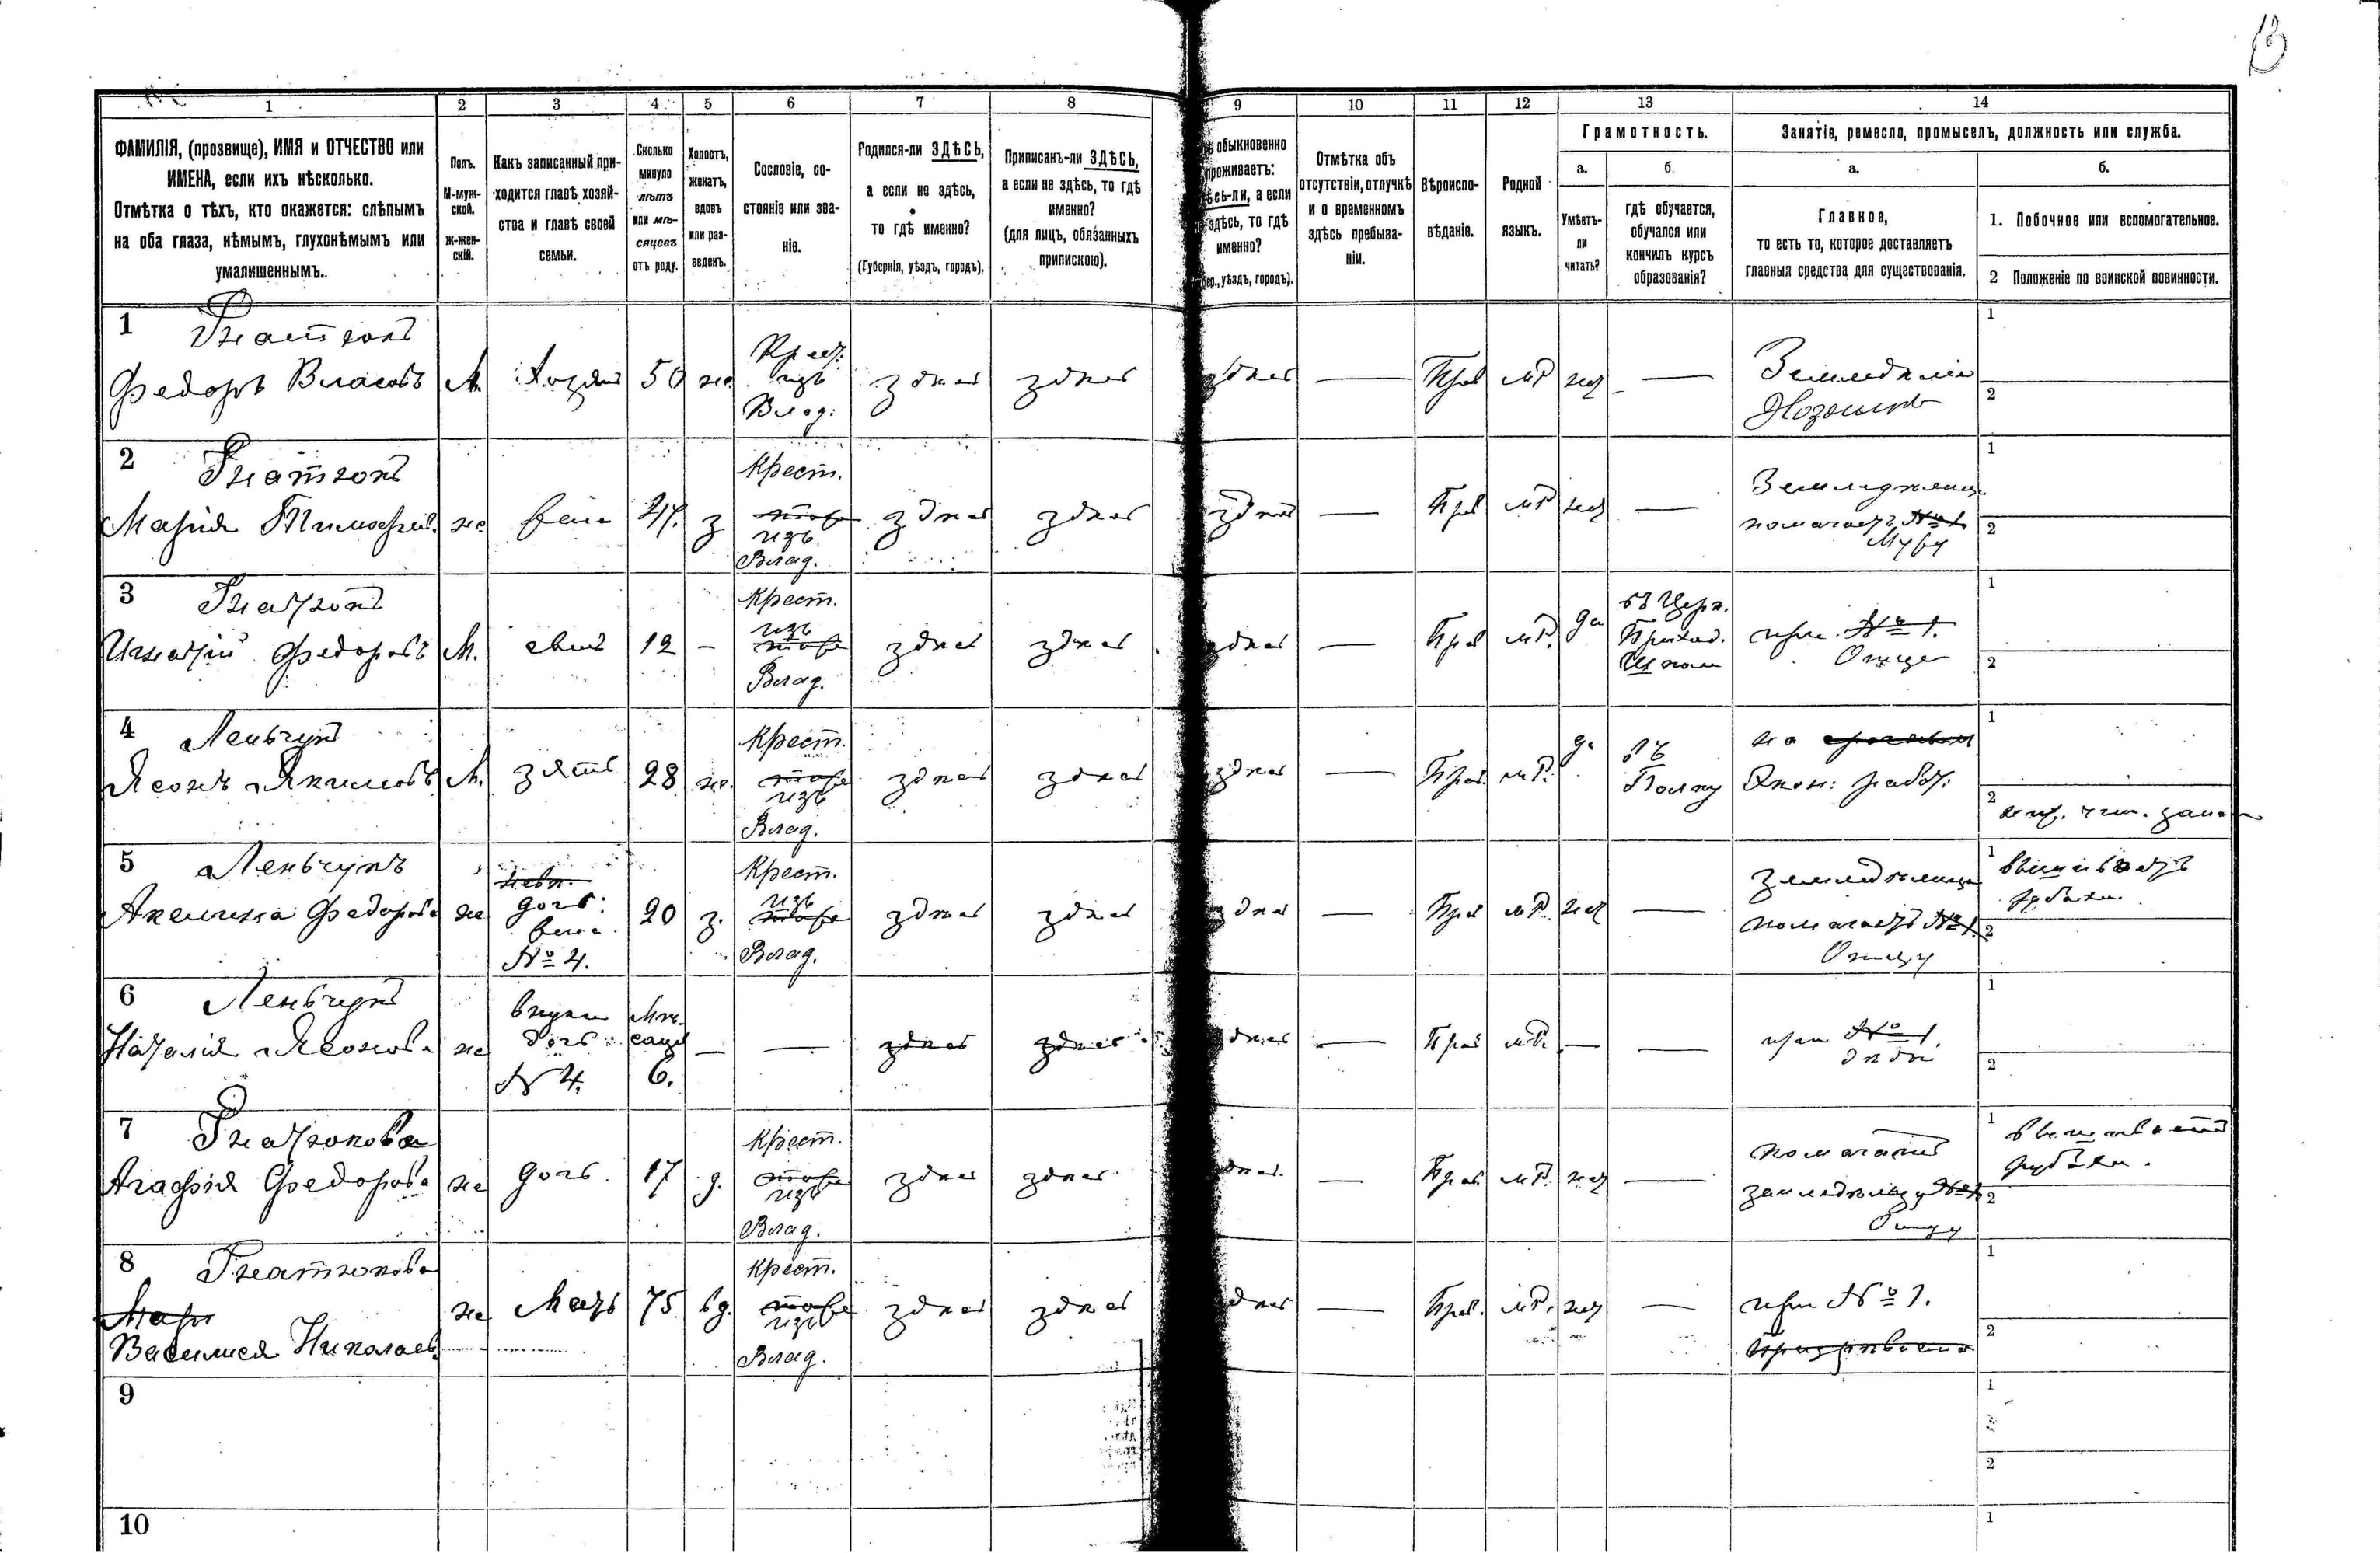 13
1 2 3 4 5 6 7 8 9 10 11 12 13 14
ФАМИЛІЯ, (прозвище), ИМЯ и ОТЧЕСТВО или
ИМЕНА, если ихъ нѣсколько.
Отмѣтка о тѣхъ, кто окажется: слѣпымъ
на оба глаза, нѣмымъ, глухонѣмымъ или
умалишеннымъ.
Полъ.
М-муж-
ской.
ж-жен-
скій.
Какъ записанный при-
ходится главѣ хозяй-
ства и главѣ своей
семьи.
Сколько
минуло
лѣтъ
или мѣ-
сяцевъ
отъ роду.
Холостъ,
женатъ,
вдовъ
или раз-
веденъ.
Сословіе, со-
стояніе или зва-
ніе.
Родился-ли ЗДѢСЬ,
а если не здѣсь,
то гдѣ именно?
(Губернія, уѣздъ, городъ).
Приписанъ-ли ЗДѢСЬ,
а если не здѣсь, то гдѣ
именно?
(для лицъ, обязанныхъ
припискою).
обыкновенно
проживаетъ:
сь-ли, а если
здѣсь, то гдѣ
именно?
уѣздъ, городъ).
Отмѣтка объ
отсутствіи, отлучкѣ
и о временномъ
здѣсь пребыва-
ніи.
Вѣроиспо-
вѣданіе.
Родной
языкъ.
Грамотность.
а.
Умѣетъ-
ли
читать?
б.
гдѣ обучается,
обучался или
кончилъ курсъ
образованія?
Занятіе, ремесло, промыселъ, должность или служба.
а.
Главное,
то есть то, которое доставляетъ
главныя средства для существованія.
б.
1. Побочное или вспомогательное.
2 Положеніе по воинской повинности.
1
Федоръ Власовъ М. Хозяин 50 ж. Крест. изъ Влад. здѣсь здѣсь здѣсь — Прав МР нѣт —
Земледѣлец
Хозяинъ
1
2
2
Марія Тимофеев. ж жена 47 з Крест. изъ Влад. здѣсь здѣсь здѣсь — Прав МР нѣт —
помогаетъ №1
Мужу
1
2
3
Игнатій Федоровъ М. сынъ 12 — Крест. изъ Влад. здѣсь здѣсь здѣсь — Прав МР. да
въ Церк.
Приход.
Школ
при №1.
Отце
1
2
4 Леньчукъ
Ясонъ Якимовъ М. зять 28 ж. Крест. изъ Влад. здѣсь здѣсь здѣсь — Прав. МР. да
въ
Полку
на
Экон: работ.
1
2
5 Леньчукъ
Акелина Федорова ж
дочь:
жена
№ 4.
20 з. Крест. изъ Влад. здѣсь здѣсь здѣсь — Прав МР нѣт —
земледѣлица
помогаетъ №1.
Отцу
1 вышиваетъ
рубахи
2
6 Леньчукъ
Наталія Ясонова ж
внука
дочь
№ 4.
Мѣ-
сяцев
6.
— — здѣсь здѣсь здѣсь — Прав МР. — —
при №1.
дѣдѣ
1
2
7
Агафія Федорова ж дочь 17 д. Крест. изъ Влад. здѣсь здѣсь здѣсь — Прав МР нѣт —
помогаетъ
земледѣльцу №1
Отцу
1 вышиваетъ
рубахи.
2
8
Мар
Василися Николаев. ж Мать 75 вд. Крест. изъ Влад. здѣсь здѣсь здѣсь — Прав. МР. нѣт —
при №1.
1
2
9
1
2
10
1